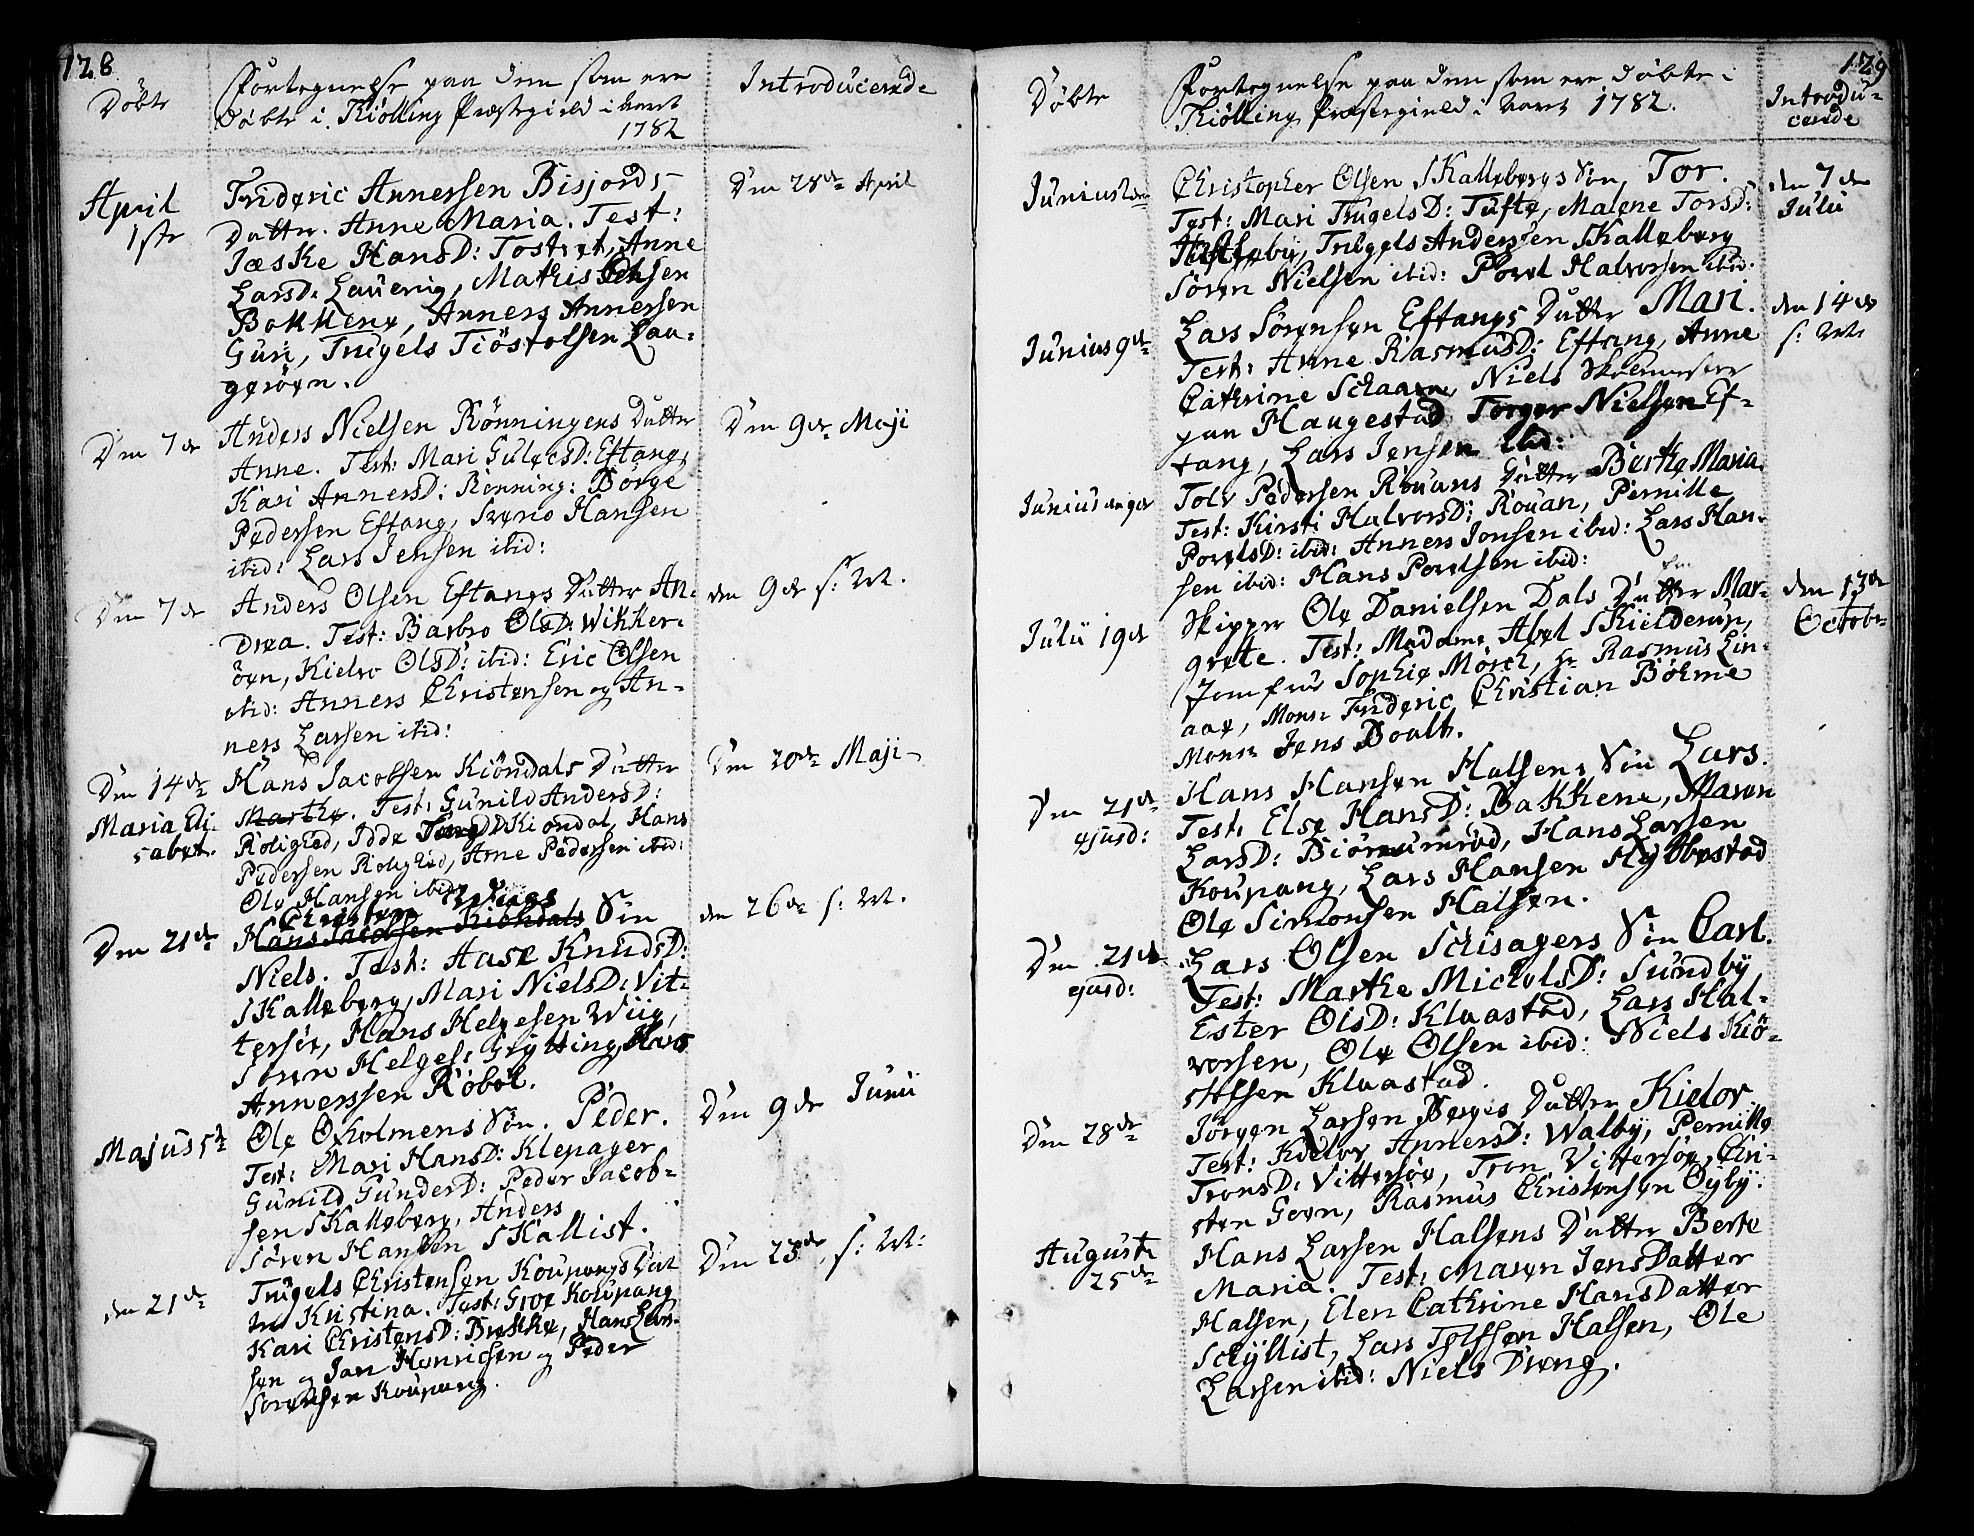 128
Döbte
Fortegnelse paa dem som ere
Döbte i Kiölling Præstegield i Aaret
1782
Introducerede
April
1ste
Frideric Annersen Bisjords
Datter. Anne Maria. Test:
Jæske HansD: Tostvet, Anne
LarsD: Lauerig, Mathis Olsen
Bakkene, Anners Annersen
Guri, Trugels Tiöstolsen Lau-
geröen.
Den 28de April
Den 7de
Anders Nielsen Rönningens Datter
Anne. Test: Mari GulecsD: Eftang,
Kari AnnersD: Rönning: Börge
Pedersen Eftang, Sveno Hansen
ibid: Lars Jensen ibid:
Den 9de Maji
Den 7de
Anders Olsen Eftangs Datter An-
drea. Test: Barbro OlsD: Wikker-
öen, Kielvo OlsD: ibid: Eric Olsen
ibid: Anners Christensen og An-
ners Larsen ibid:
den 9de s: M.
Den 14de
Maria Eli-
sabet.
Hans Jacobsen Kiöndals Datter
Marthe. Test: Gunild AndersD:
Rolighed, Idde Kiöndal, Hans
Pedersen Rolighed, Arne Pedersen ibid:
Ole Hansen ibid:
Den 20de Maji
Den 21de
Hans Jacobsen Kiöndals Sön
Niels. Test: Aase KnudsD:
Skalleberg, Mari NielsD: Vit-
tersöe, Hans Helgesen Wiig,
Sören Helges: Grytting, Hans
Annerssen Röböl.
den 26de s: M.
Majus 5te
Ole Oxholmens Sön. Peder.
Test: Mari HansD: Klepager
Gunild GunderD: Peder Jacob-
sen Skalleberg, Anders
Sören Hansen Skallist.
Den 9de Junii
den 21de
Trugels Christensen Koupangs Dat
ter Kristina. Test: Groe Koupang
Kari ChristensD: Brekke, Hans Lar-
sen og Jan Henricsen og Peder
Sörensen Koupang.
Den 23de s: M:
129
Döbte
Fortegnelse paa dem som ere döbte i
Kiölling Præstegield i Aaret 1782.
Introdu-
cerede
Junius
Christopher Olsen Skallebergs Sön, Tor.
Test: Mari TrugelsD: Tufte, Malene TorsD:
Trugels Andersen Skalleberg
Sören Nielsen ibid: Povel Halvorsen ibid:
den 7de
Julii
Junius 9de
Lars Sörensen Eftangs Datter Mari.
Test: Anne RasmusD: Eftang, Anne
Cathrine Schaaen, Niels Skolemester
paa Haugestad Torger Nielsen Ef-
tang, Lars Jensen ibid:
den 14de
s: M.
Junius
Tolv Pedersen Rouans Datter Berthe Maria
Test: Kirsti HalvorsD: Rouan, Pernille
PovelsD: ibid: Anners Jonsen ibid: Lars Han-
sen ibid: Hans Povelsen ibid:
Julii 19de
Skipper Ole Danielsen Dals Datter Mar-
grete. Test: Madame Abel Skielderup,
Jomfrue Sophie Mörch, Hr Rasmus Lin-
aae, Monsr Frideric Christian Böhme
Monsr Jens Boalt.
den 13de
Octobr
Den 21de
ejusd:
Hans Hansen Halsens Sön Lars.
Test: Else HansD: Bakkene, Maren
LarsD: Biörnumröd, Hans Larsen
Koupang, Lars Hansen Hybbestad
Ole Simonsen Halsen.
Den 21de
ejusd:
Lars Olsen Schisagers Sön Carl.
Test: Marthe MichelsD: Sundby,
Ester OlsD: Klaastad, Lars Hal-
vorsen, Ole Olsen ibid: Niels Kiö-
stelsen Klaastad.
Den 28de
Jörgen Larsen Berges Datter Kielor
Test: Kielor AnnersD: Walby, Pernille
TronsD: Vittersöe, Tron Vittersöe, Cri-
sten Goen, Rasmus Christensen Öyby:
Augusti
25de
Hans Larsen Halsens Datter Berte
Maria. Test: Maren JensDatter
Halsen, Elen Cathrine HansDatter
Schyllist, Lars Tolfsen Halsen, Ole
Larsen ibid: Niels Dreng.